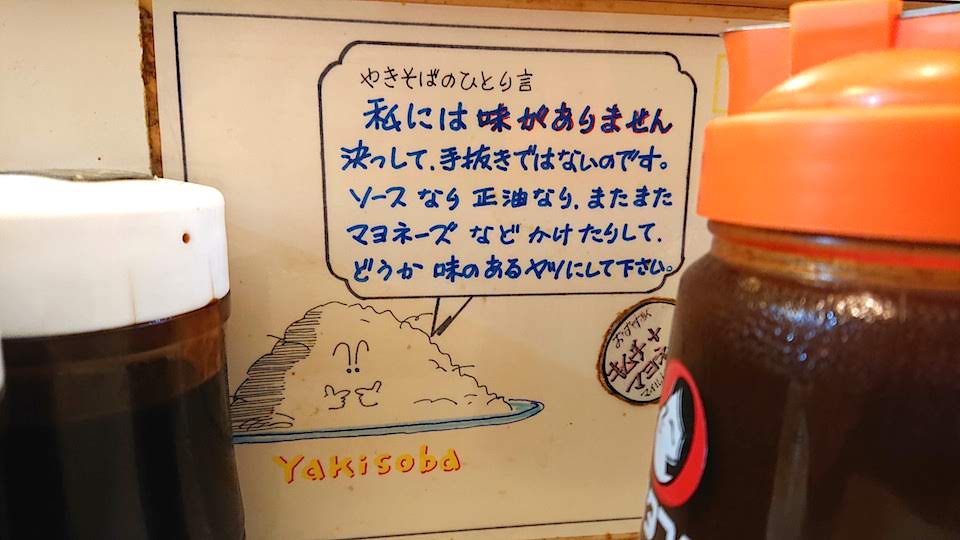 やきそばのひとり言
私には味がありません
決っして、手抜きではないのです。
ソースなら正油なり、またまた
マヨネーズなどかけたりして、
どうか味のあるヤツにして下さい。
おすすめ
キムチ+
マヨネ
Yakisoba